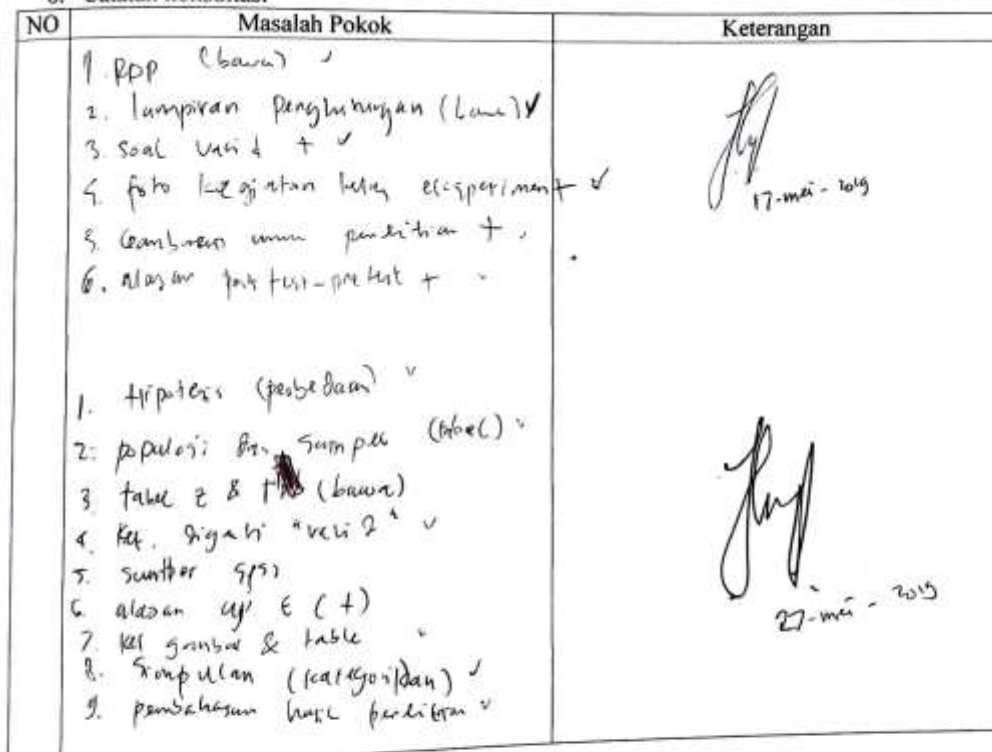 NO
Masalah Pokok
Keterangan
1. RPP (bawa) ✓
2. lampiran penghitungan (bawa) ✓
3. Soal valid + ✓
4. foto kegiatan kelas eksperiment ✓
5. Gambaran umum penelitian +
6. alasan post test-pretest +
17-mei-2019
1. Hipotesis (perbedaan) ✓
2. populasi dan sampel (tabel) ✓
3. tabel z & (bawa)
4. Ket. diganti "valid" ✓
5. sumber spss
6. alasan uji t (+)
7. ket gambar & table
8. Simpulan (kategori dan) ✓
9. pembahasan hasil penelitian ✓
27-mei-2019